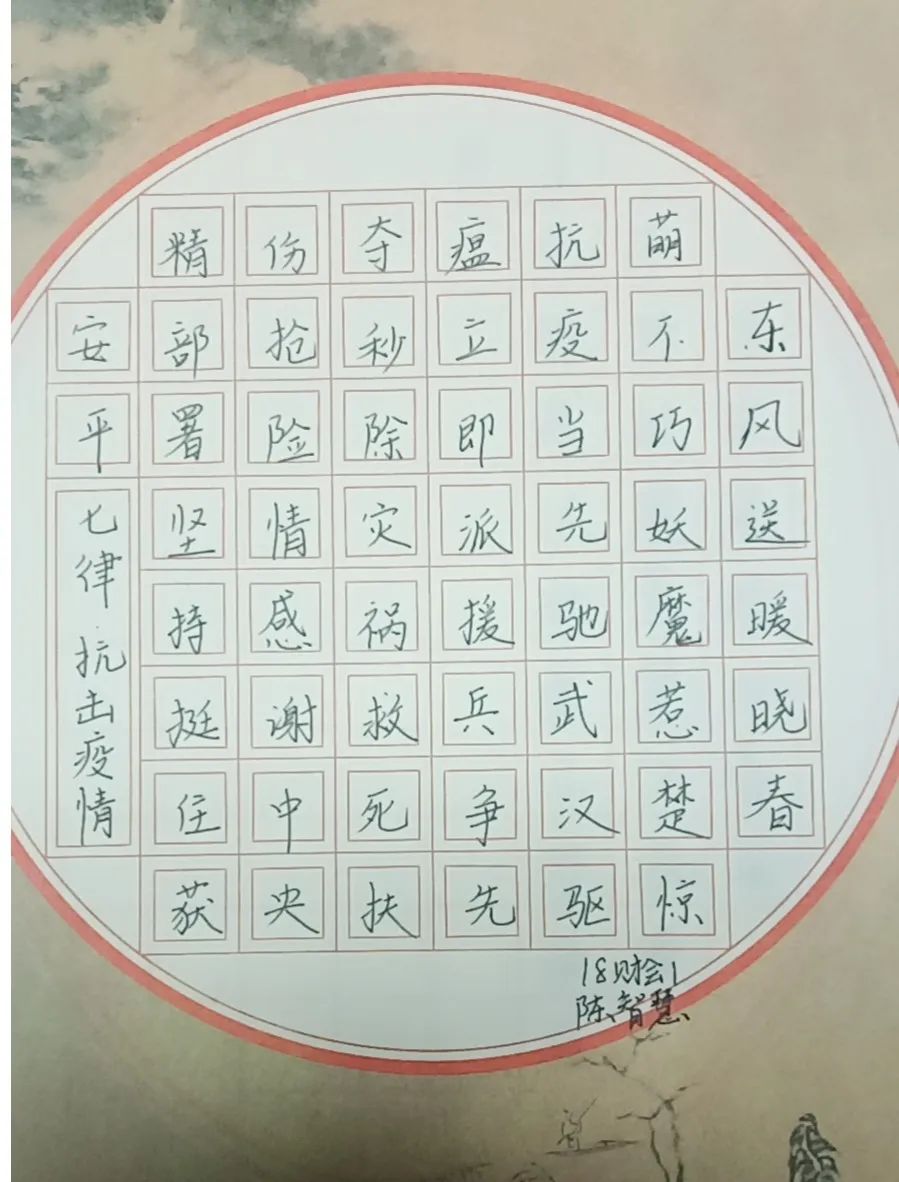 东风送暖晓春
萌不巧妖魔惹楚惊
抗疫当先驰武汉驱
瘟立即派援兵争先
夺秒除灾祸救死扶
伤抢险情感谢中央
精部署坚持挺住获
安平
七律·抗击疫情
18财会1
陈智慧